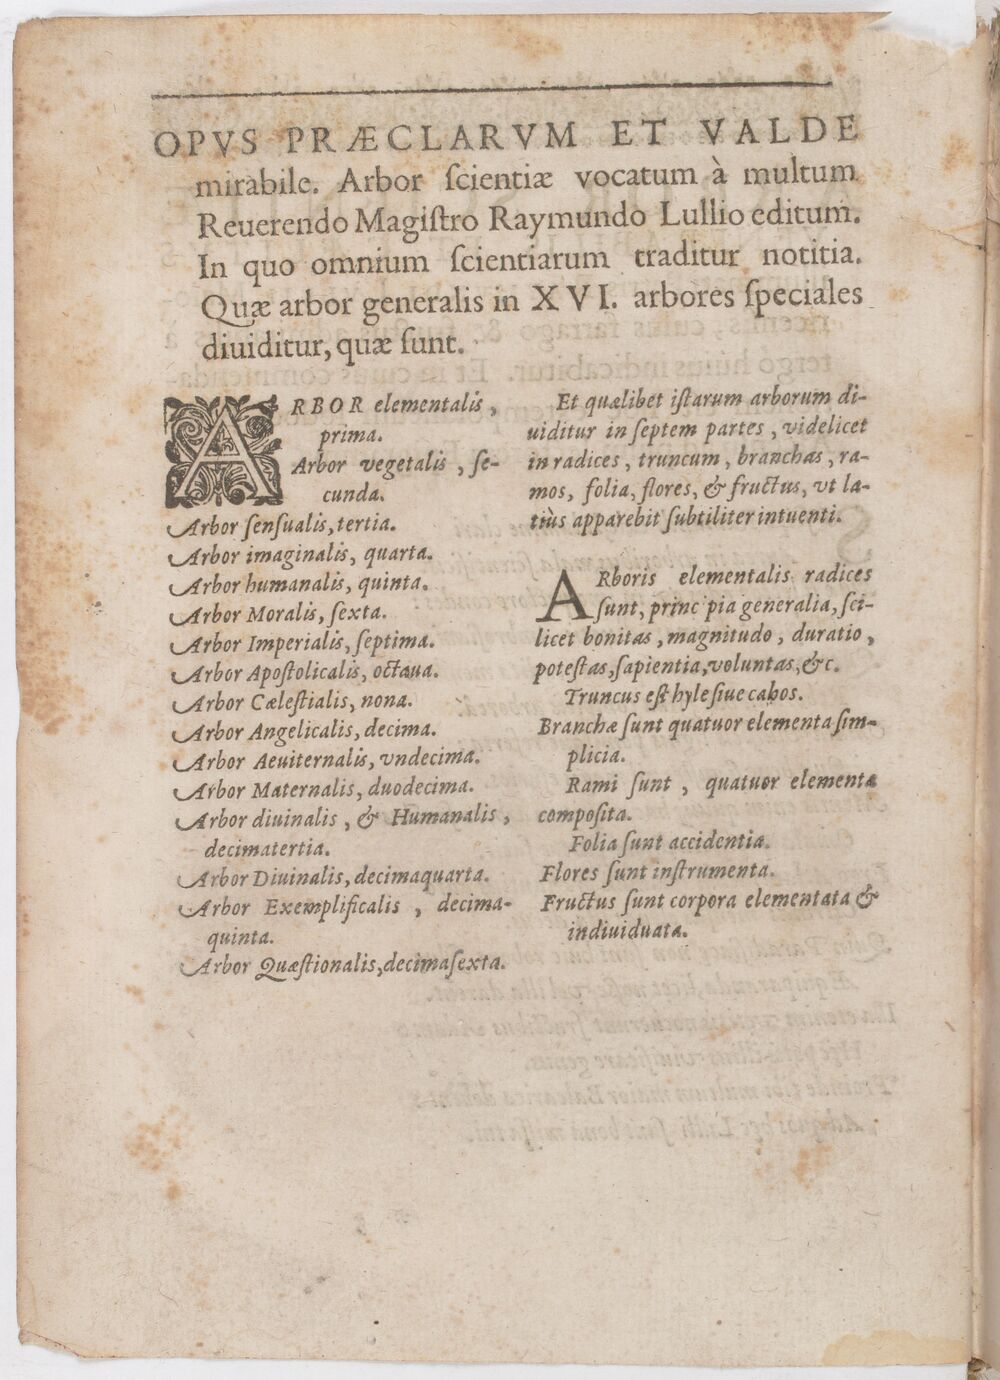 OPVS PRÆCLARVM ET VALDE
mirabile. Arbor ſcientiæ vocatum à multum
Reuerendo Magiſtro Raymundo Lullio editum.
In quo omnium ſcientiarum traditur notitia.
Quæ arbor generalis in XVI. arbores ſpeciales
diuiditur, quæ ſunt.
ARBOR elementalis,
prima.
Arbor vegetalis, ſe-
cunda.
Arbor ſenſualis, tertia.
Arbor imaginalis, quarta.
Arbor humanalis, quinta.
Arbor Moralis, ſexta.
Arbor Imperialis, ſeptima.
Arbor Apoſtolicalis, octaua.
Arbor Cæleſtialis, nona.
Arbor Angelicalis, decima.
Arbor Aeuiternalis, vndecima.
Arbor Maternalis, duodecima.
Arbor diuinalis, & Humanalis,
decimatertia.
Arbor Diuinalis, decimaquarta.
Arbor Exemplificalis, decima-
quinta.
Arbor Quæſtionalis, decimaſexta.
Et quælibet iſtarum arborum di-
uiditur in ſeptem partes, videlicet
in radices, truncum, branchas, ra-
mos, folia, flores, & fructus, vt la-
tiùs apparebit ſubtiliter intuenti.
ARboris elementalis radices
ſunt, principia generalia, ſci-
licet bonitas, magnitudo, duratio,
poteſtas, ſapientia, voluntas, &c.
Truncus eſt hyle ſiue cahos.
Branchæ ſunt quatuor elementa ſim-
plicia.
Rami ſunt, quatuor elementa
compoſita.
Folia ſunt accidentia.
Flores ſunt inſtrumenta.
Fructus ſunt corpora elementata &
indiuiduata.